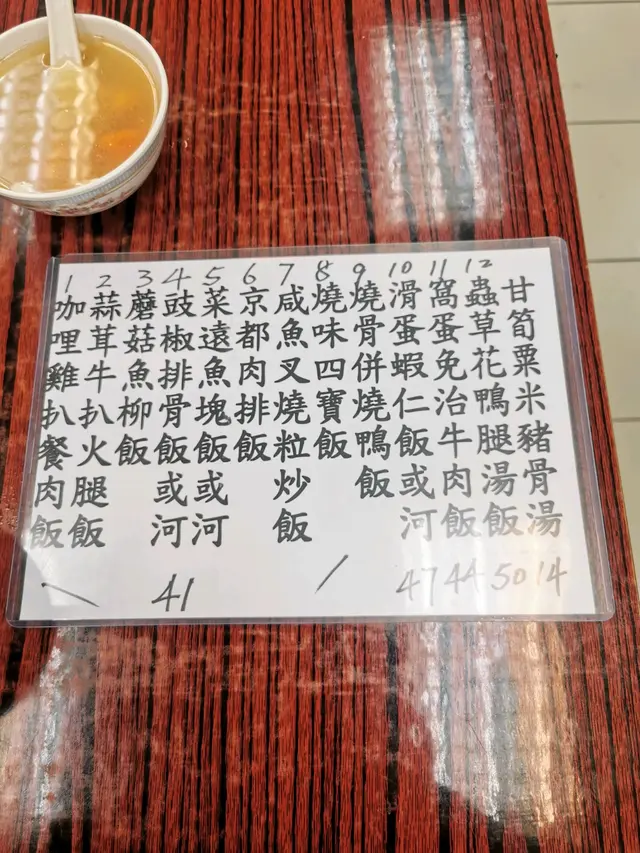 1 咖哩雞扒餐肉飯
2 蒜茸牛扒火腿飯
3 蘑菇魚柳飯
4 豉椒排骨飯或河
5 菜遠魚塊飯或河
6 京都肉排飯
7 咸魚叉燒粒炒飯
8 燒味四寶飯
9 燒骨併燒鴨飯
10 滑蛋蝦仁飯或河
11 窩蛋免治牛肉飯
12 蟲草花鴨腿湯飯
甘筍粟米豬骨湯
\ 41 / 47 44 50 14